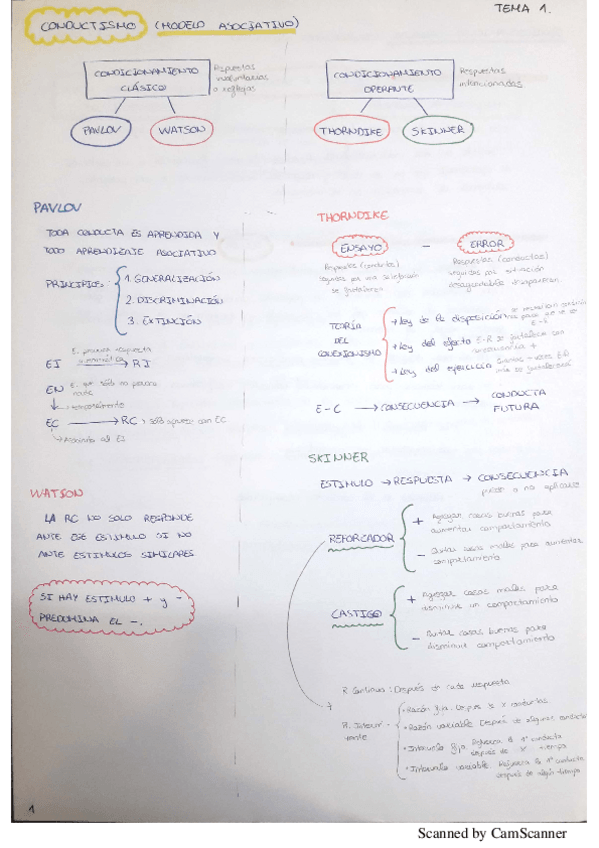 TEMA 1.
CONDUCTISMO (MODELO ASOCIATIVO)
CONDICIONAMIENTO
CLÁSICO
Respuestas
involuntarias
o reflejas
PAVLOV
WATSON
CONDICIONAMIENTO
OPERANTE
Respuestas
intencionadas
THORNDIKE
SKINNER
PAVLOV
TODA CONDUCTA ES APRENDIDA Y
TODO APRENDIZAJE ASOCIATIVO
PRINCIPIOS:
1. GENERALIZACIÓN
2. DISCRIMINACIÓN
3. EXTINCIÓN
E. provoca respuesta
automática
EI → RI
EN E. que solo no provoca
nada
EC → RC solo aparece con EC
Asociado al EI
WATSON
LA RC NO SOLO RESPONDE
ANTE ESE ESTIMULO SI NO
ANTE ESTIMULOS SIMILARES
SI HAY ESTIMULO + y -
PREDOMINA EL -.
THORNDIKE
ENSAYO - ERROR
Respuestas (conductas)
se fortalecen
Respuestas (conductas)
seguidas por
desagradable desaparecen
TEORÍA
DEL
CONEXIONISMO
Ley de la disposición
E-R
Ley del efecto E-R se fortalece con
Ley del ejercicio
más se fortalecerá
E-C → CONSECUENCIA → CONDUCTA
FUTURA
SKINNER
ESTIMULO → RESPUESTA → CONSECUENCIA
puede o no aplicarse
REFORZADOR
+ Agregar cosas buenas para
aumentar comportamiento
- Quitar cosas malas para aumentar
comportamiento
CASTIGO
+ Agregar cosas malas para
disminuir un comportamiento
- Quitar cosas buenas para
disminuir comportamiento
R. Continua: Después de cada respuesta
• Razón fija. Después de X conductas
• Razón variable. Después de algunas conductas
• Intervalo fijo. Refuerza la 1ª conducta
después de X tiempo
• Intervalo variable. Refuerza la 1ª conducta
después de algún tiempo
1
Scanned by CamScanner